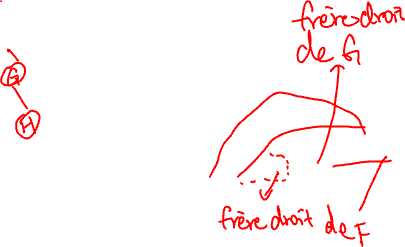 frère droit
de G
G
H
frère droit de F